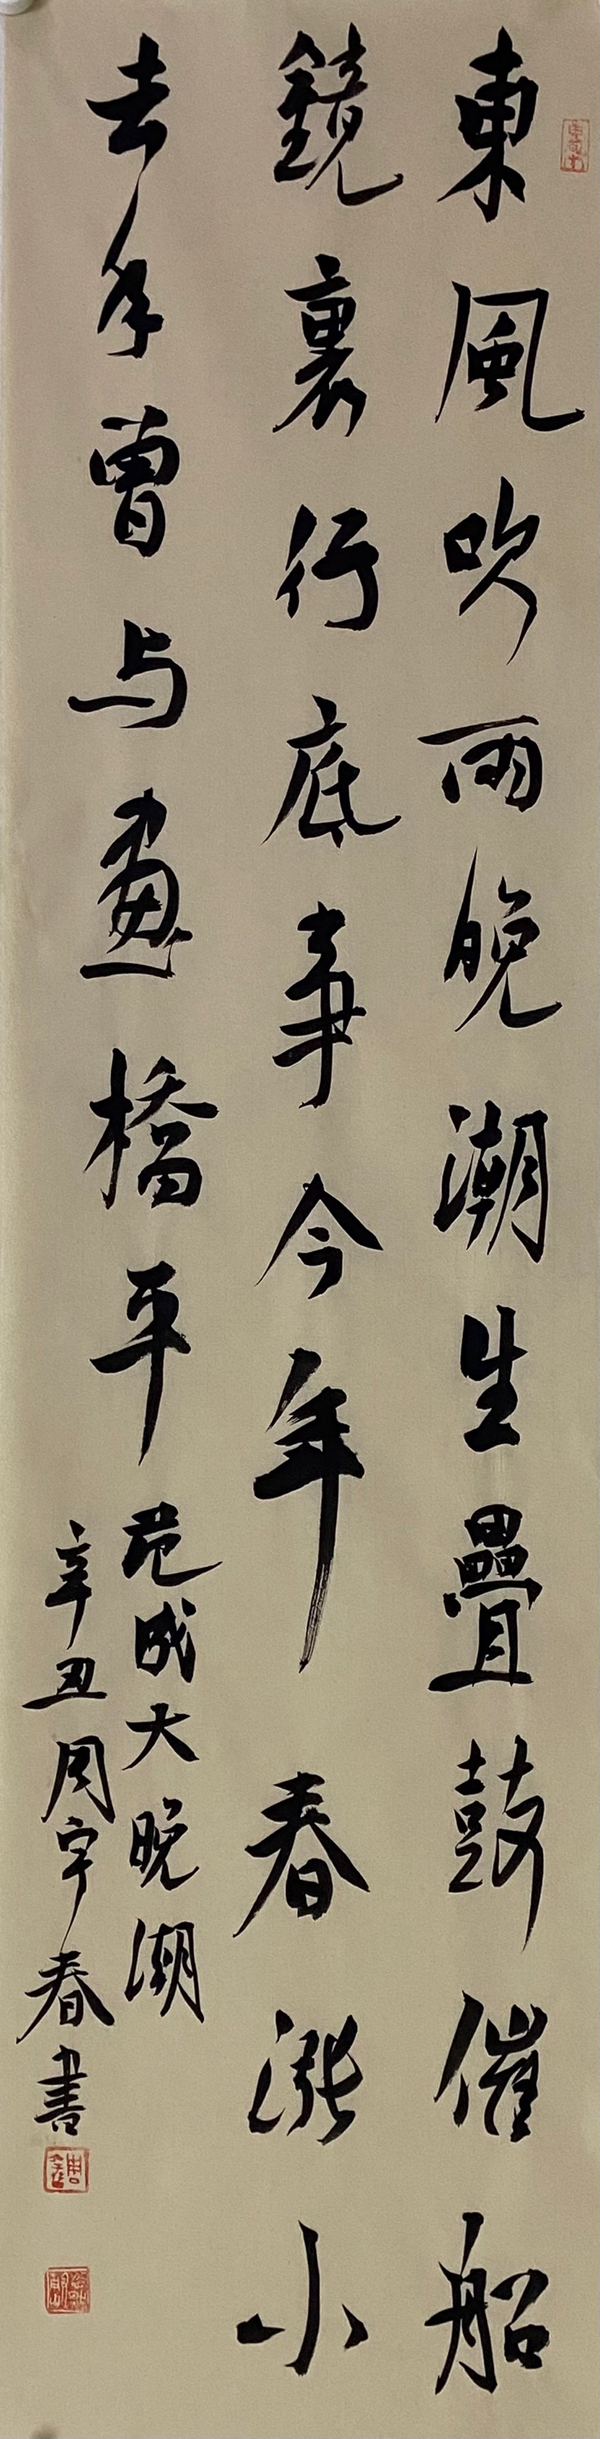 東風吹雨晚潮生疊鼓催船
鏡裏行底事今年春漲小
去年曾与畫橋平
范成大晚潮
辛丑周宇春書